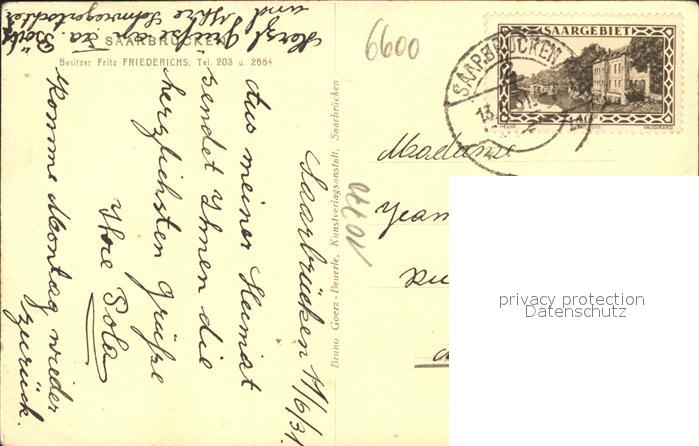 SAARBRÜCKEN
Besitzer Fritz FRIEDERICHS, Tel. 203 u. 2684
Saarbrücken 11/6/31
Aus meiner Heimat
sendet Ihnen die
herzlichsten Grüße
Ihre Pola
Komme Montag wieder
zurück.
Herzl. Grüße an Fa.
und Ihre Schwiegertochter
Bruno Goerz-Beuerle, Kunstverlagsanstalt, Saarbrücken
6600
SAARGEBIET
SAARBRÜCKEN
13
HELIO
VAUGIRARD
Madame
Jean
privacy protection
Datenschutz